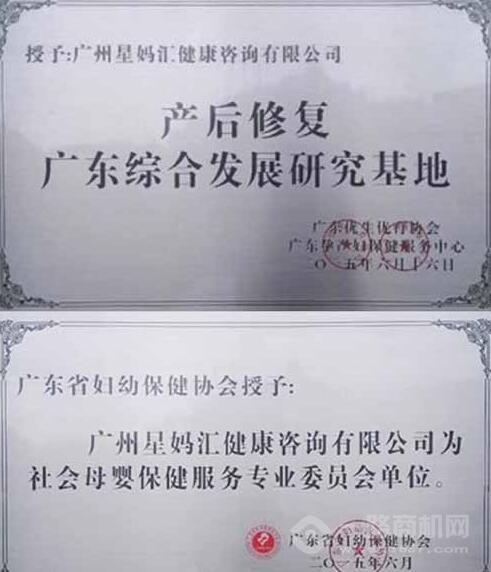 授予:广州星妈汇健康咨询有限公司
产后修复
广东综合发展研究基地
广东优生优育协会
广东孕产妇保健服务中心
二〇一五年六月十六日
广东省妇幼保健协会授予:
广州星妈汇健康咨询有限公司为
社会母婴保健服务专业委员会单位。
广东省妇幼保健协会
二〇一五年六月
路商机网